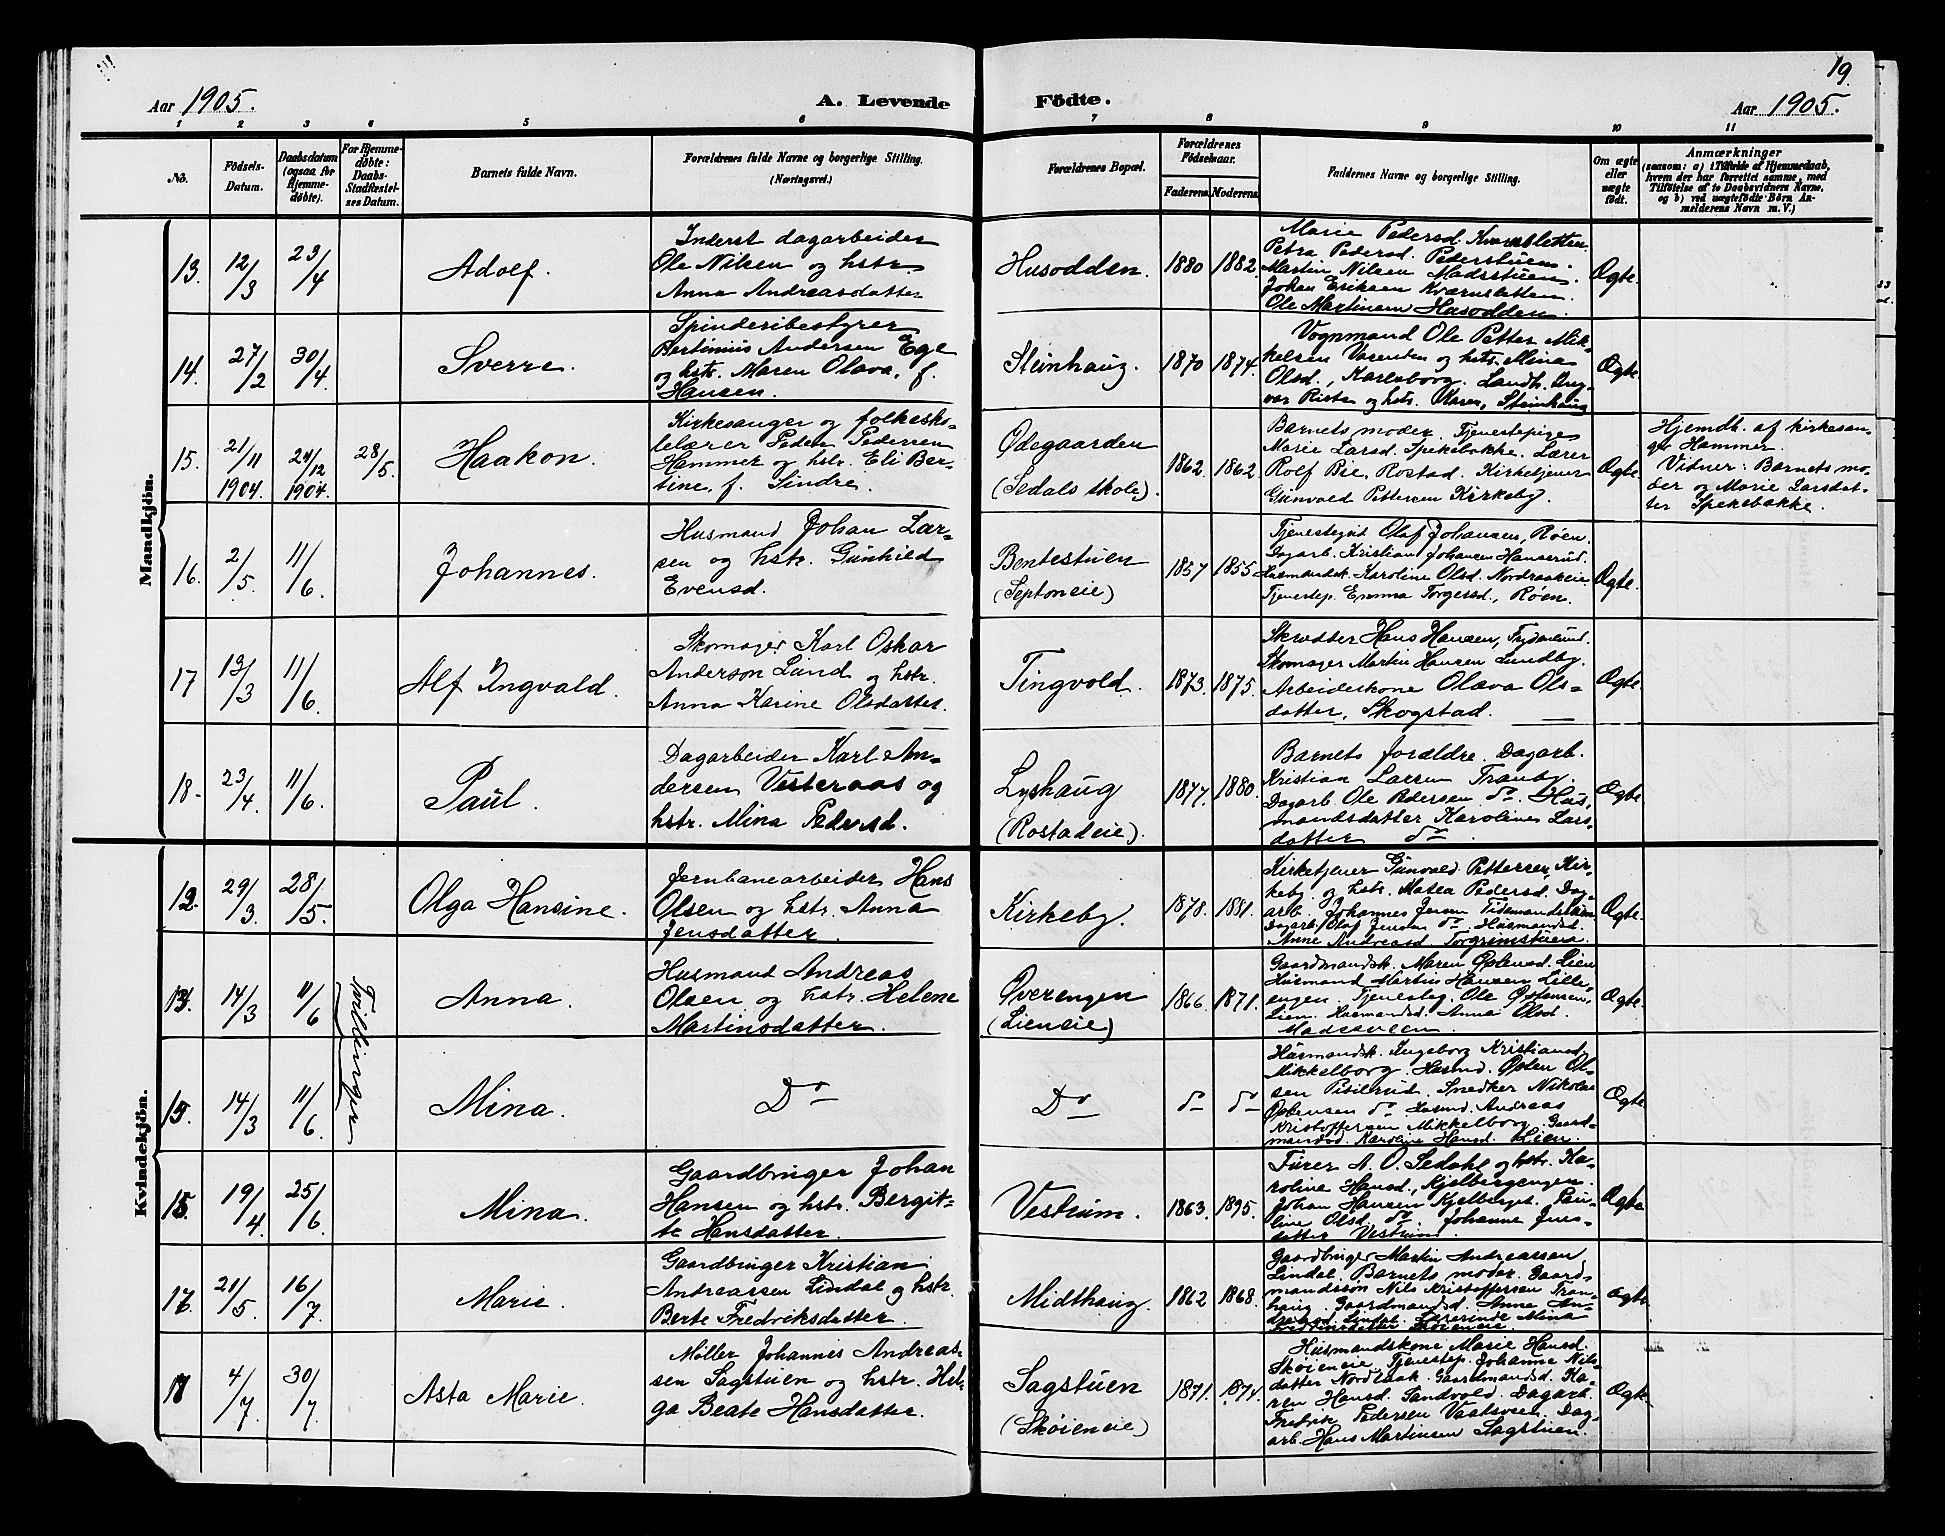 19.
Aar 1905.
A. Levende
Födte.
Aar 1905.
1 2 3 4 5 6 7 8 9 10 11
No.
Födsels-
Datum.
Daabsdatum
(ogsaa for
Hjemme-
døbte).
For Hjemme-
døbte:
Daabs-
Stadfæstel-
ses Datum.
Barnets fulde Navn.
Forældrenes fulde Navne og borgerlige Stilling.
(Næringsvei.)
Forældrenes Bopæl.
Forældrenes
Födselsaar.
Faderens
Moderens
Faddernes Navne og borgerlige Stilling.
Om ægte
eller
uægte
født.
Anmærkninger
(saasom: a) i Tilfælde af Hjemmedaab,
hvem der har forrettet samme, med
Tilføielse af to Daabsvidners Navne.
og b) ved uægtefødte Börn An-
melderens Navn m. V.)
Mandkjön.
13. 12/3 23/4 Adolf.
Inderst dagarbeider
Ole Nilsen og hstr.
Anna Andreasdatter
Husodden. 1880 1882.
Marie Pedersd. Kværnsletten.
Petra Pedersd. Pederstuen.
Martin Nilsen Madsstuen.
Johan Eriksen Kværnsletten.
Ole Martinsen Husodden.
Ægte.
14. 27/2 30/4 Sverre.
Spinderibestyrer
Bertinius Andersen Ege
og hstr. Maren Olava, f.
Hansen.
Steinhaug. 1870 1874.
Vognmand Ole Petter Mik-
kelsen og hstr. Mina
Olsd., Karlsborg. Landh.
og hstr. Steinhaug
Ægte
15. 21/11 1904. 24/12 1904. 28/5. Haakon.
Kirkesanger og folkesko-
lelærer Peder Pedersen
Hammer og hstr. Eli Ber-
tine, f. Sindre.
Ødegaarden
(Sedals skole). 1862 1862
Barnets moder. Tjenestepige
Marie Larsd. Spekebakke. Lærer
Rolf Bie, Rostad. Kirketjener
Gunvald Pettersen Kirkeby.
Ægte
Hjemdb. af kirkesan-
ger Hammer.
Vidner: Barnets mo-
der og Marie Larsdat-
ter Spekebakke.
16. 2/5. 11/6. Johannes.
Husmand Johan Lar-
sen og hstr. Gunhild
Evensd.
Bentestuen
(Septoneie) 1857 1855
Tjenestegut Olaf Johansen, Røen.
Dagarb. Kristian Johansen Hanserud.
Husmandsk. Karoline Olsd. Nordraakeie
Tjenestep. Emma Torgersd., Røen.
Ægte
17 13/3 11/6. Alf Ingvald.
Skomager Karl Oskar
Anderson Lund og hstr.
Anna Karine Olsdatter.
Tingvold. 1873. 1875.
Skrædder Hans Hansen,
Skomager Martin Hansen Lundby.
Arbeiderskone Olava Ols-
datter, Skogstad.
Ægte.
18. 23/4. 11/6. Paul.
Dagarbeider Karl An-
dersen Vesteraas og
hstr. Mina Pedersd.
Lyshaug
(Rostadeie). 1877. 1880.
Barnets forældre. Dagarb.
Kristian Larsen Tranby.
Dagarb. Ole Pedersen do. Hus-
mandsdatter Karoline Lars-
datter do
Ægte
Kvindekjön.
12. 29/3. 28/5. Olga Hansine.
Jernbanearbeider Hans
Olsen og hstr. Anna
Jensdatter.
Kirkeby. 1878. 1881.
Kirketjener Gunvald Pettersen, Kir-
keby og hstr. Matea Pedersd. Dag-
arb. Johannes Jensen
Dagarb. Olaf Jensen do Husmandsd.
Anne Andreasd. Torgrimstuen.
Ægte
14/3 11/6 Anna.
Tvillinger
Husmand Andreas
Olsen og hstr. Helene
Martinsdatter.
Øverengen
(Lieneie) 1866 1871.
Gaardmandsk. Maren Østensd. Lien
Husmand Martin Hansen Lille-
engen. Tjenesteg. Ole Østensen,
Lien. Husmandsd. Anna Olsd.
Ægte
15. 14/3 11/6 Mina.
Do
Do do do
Husmandsk. Ingeborg Kristiansd.
Mikkelborg. Husmd. Østen Ol-
sen Pisilrud. Snedker Nikolai
Østensen do Husmd. Andreas
Kristoffersen Mikkelborg. Gaard-
mandsd. Karoline Hansd. Lien.
Ægte
19/4 25/6 Mina.
Gaardbruger Johan
Hansen og hstr. Bergit-
te Hansdatter.
Vestrum. 1863. 1895.
Furer A. O. Sedahl og hstr. Ka-
roline Hansd., Kjelbergengen.
Johan Hansen Kjelberget. Pau-
line Olsd. do. Johanne Jens-
datter Vestrum.
Ægte
17. 21/5 16/7 Marie.
Gaardbruger Kristian
Andreassen Lindal og hstr.
Berte Fredriksdatter.
Midthaug. 1862 1868.
Gaardbruger Martin Andreassen
Lindal. Barnets moder. Gaard-
mandssøn Nils Kristoffersen Tran-
haug. Gaardmandsd. Anne An-
dreasd. Lindal. Lærerinde Mina
Skøieneie
Ægte
4/7 30/7. Asta Marie.
Møller Johannes Andreas-
sen Sagstuen og hstr. Hel-
ga Beate Hansdatter.
Sagstuen
(Skøieneie) 1871. 1874.
Husmandskone Marie Hansd.
Skøieneie. Tjenestep. Johanne Nils-
datter Nordraak. Gaardmandsd. Ka-
ren Hansd. Sandvold. Dagarb.
Fredrik Pedersen Dag-
arb. Hans Martinsen Sagstuen.
Ægte